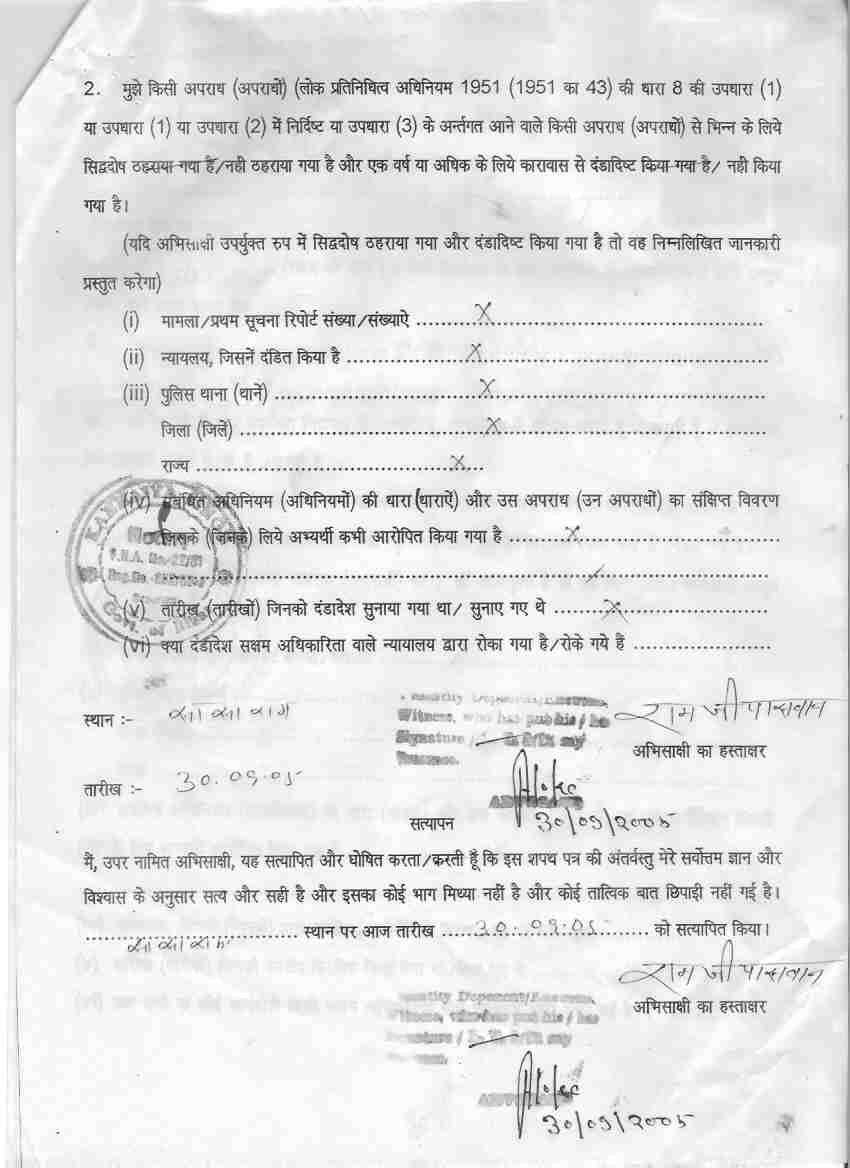 2. मुझे किसी अपराध (अपराधों) (लोक प्रतिनिधित्व अधिनियम 1951 (1951 का 43) की धारा 8 की उपधारा (1)
या उपधारा (1) या उपधारा (2) में निर्दिष्ट या उपधारा (3) के अर्न्तगत आने वाले किसी अपराध (अपराधों) से भिन्न के लिये
सिद्वदोष ठहराया गया है/नही ठहराया गया है और एक वर्ष या अधिक के लिये कारावास से दंडादिष्ट किया गया है/ नही किया
गया है।
(यदि अभिसाक्षी उपर्युक्त रुप में सिद्वदोष ठहराया गया और दंडादिष्ट किया गया है तो वह निम्नलिखित जानकारी
प्रस्तुत करेगा)
(i) मामला/प्रथम सूचना रिपोर्ट संख्या/संख्याऐ ........ X ........
(ii) न्यायलय, जिसनें दंडित किया है ........ X ........
(iii) पुलिस थाना (थानें) ........ X ........
जिला (जिलें) ........ X ........
राज्य ........ X ........
(iv) संबंधित अधिनियम (अधिनियमों) की धारा (धाराऐं) और उस अपराध (उन अपराधों) का संक्षिप्त विवरण
जिसके (जिनके) लिये अभ्यर्थी कभी आरोपित किया गया है ........ X ........
(v) तारीख (तारीखों) जिनको दंडादेश सुनाया गया था/ सुनाए गए थे ........ X ........
(vi) क्या दंडादेश सक्षम अधिकारिता वाले न्यायालय द्वारा रोका गया है/रोके गये है ........
Witness, who has put his / he
Signature /
स्थान :- सासाराम
रामजी पासवान
अभिसाक्षी का हस्ताक्षर
तारीख :- 30.09.05
ADVOCATE
सत्यापन 30/09/2005
मैं, उपर नामित अभिसाक्षी, यह सत्यापित और घोषित करता/करती हूँ कि इस शपथ पत्र की अंतर्वस्तु मेरे सर्वोत्तम ज्ञान और
विश्वास के अनुसार सत्य और सही है और इसका कोई भाग मिथ्या नहीं है और कोई तात्विक बात छिपाई नहीं गई है।
सासाराम ........ स्थान पर आज तारीख ........ 30.09.05 ........ को सत्यापित किया।
रामजी पासवान
अभिसाक्षी का हस्ताक्षर
30/09/2005